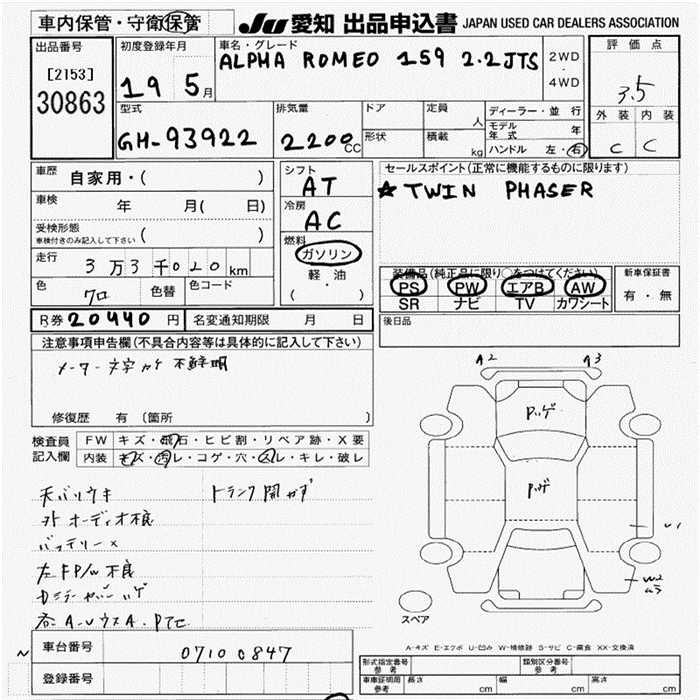 車内保管・守衛保管 JU 愛知 出品申込書 JAPAN USED CAR DEALERS ASSOCIATION
出品番号 初度登録年月 車名・グレード 評価点
[2153] 19 5月 ALPHA ROMEO 159 2.2JTS 2WD・4WD 3.5
30863
型式 排気量 ドア 定員 人 ディーラー・並行 外装 内装
GH-93922 2200cc 形状 積載 kg モデル年式 年 C C
ハンドル 左・右
車歴 自家用・( ) シフト AT セールスポイント(正常に機能するものに限ります)
車検 年 月( 日) 冷房 AC ☆TWIN PHASER
受検形態
車検付きのみ記入して下さい ( ) 燃料 ガソリン
走行 3万3千020km 軽油 装備品(純正品に限り○をつけてください) 新車保証書
色 クロ 色替 色コード ( ・ ) PS PW エアB AW 有・無
SR ナビ TV カワシート
R券 20440円 名変通知期限 月 日 後日品
注意事項申告欄(不具合内容等は具体的に記入して下さい)
メーター文字 不鮮明
修復歴 有 〔箇所 〕
A2 A3
検査員記入欄 FW キズ・飛石・ヒビ割・リペア跡・X要
内装 キズ・汚レ・コゲ・穴・スレ・キレ・破レ
天バリウキ トランク開かず
外オーディオ不良
バッテリー×
左FP/W不良
U1
W2
スペア
A-キズ E-エクボ U-凹み W-補修跡 S-サビ C-腐食 XX-交換済
車台番号 0710 C847
登録番号
形式指定番号 参考 類別区分番号 参考
車車証明用 参考 長さ cm 幅 cm 高さ cm